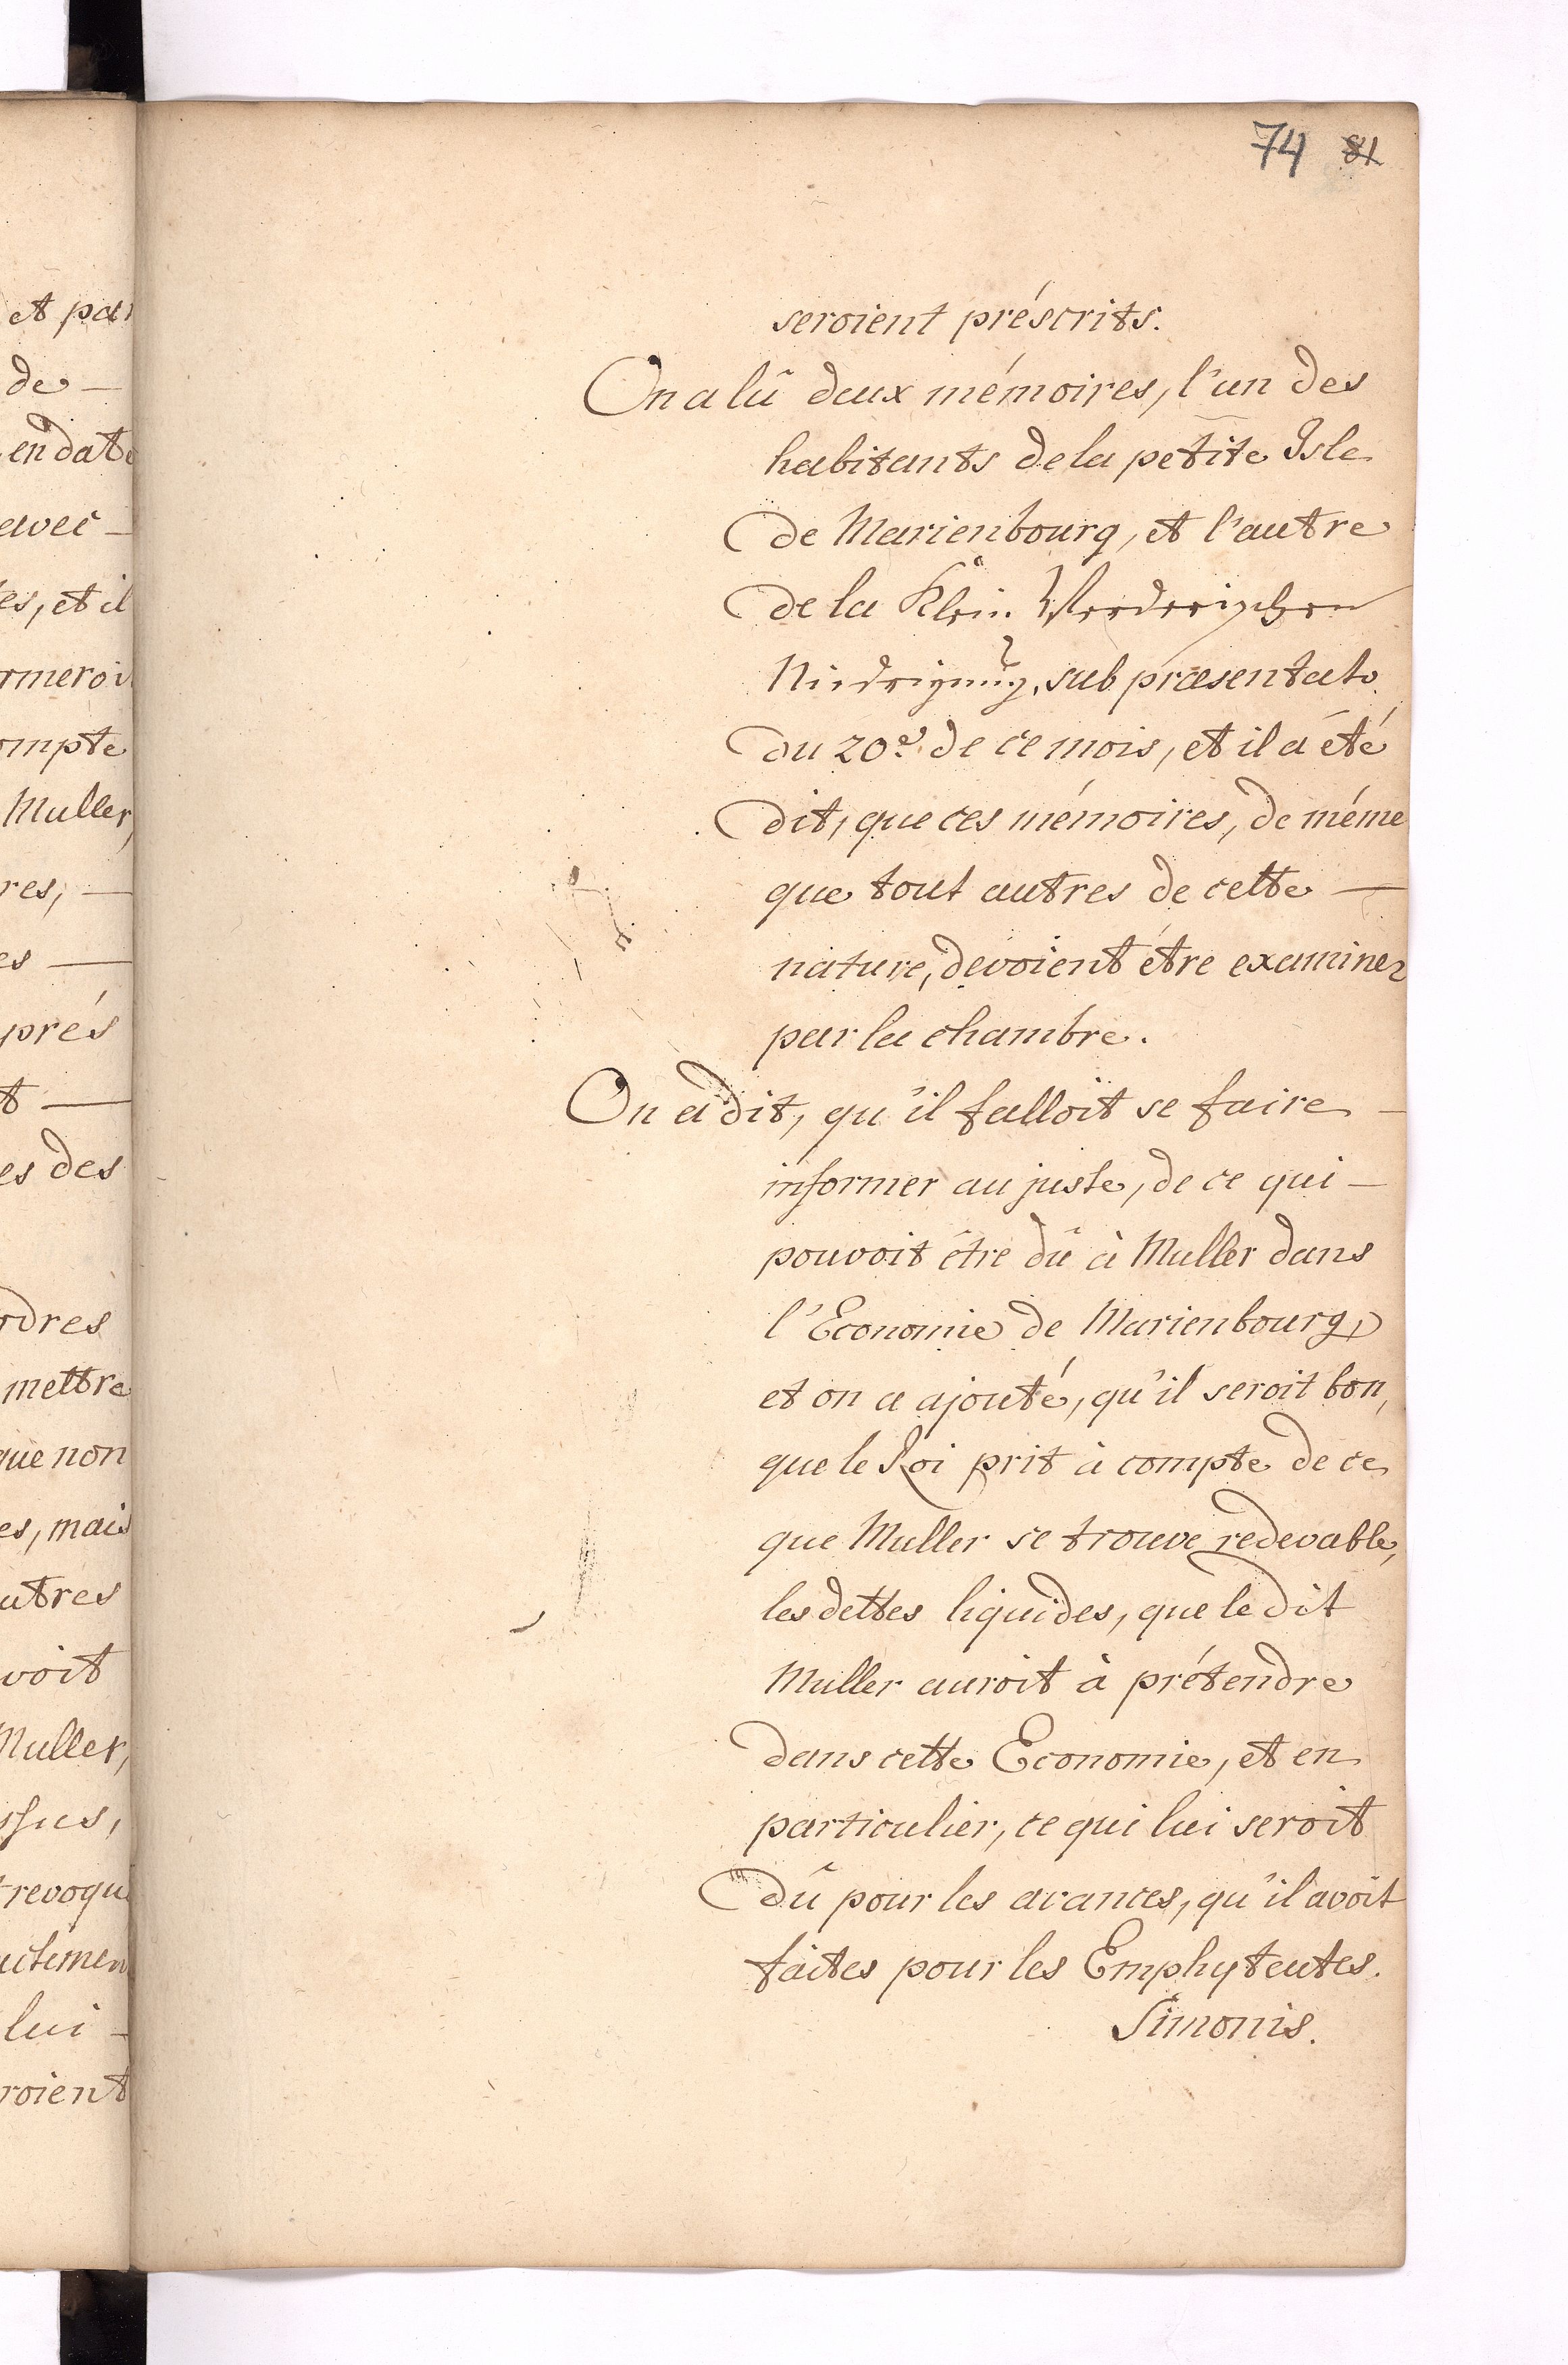 74 81
seroient préscrits.
On a lû deux mémoires, l'un des
habitants de la petite Isle
de Marienbourg, et l'autre
de la Klein Werderischen
Niedrigung, sub præsentato
du 20e. de ce mois, et il a été
dit, que ces mémoires, de méme
que tout autres de cette —
nature, devoient étre examinez
par la chambre.
On a dit, qu'il falloit se faire —
informer au juste, de ce qui —
pouvoit étre dû à Muller dans
l'Economie de Marienbourg,
et on a ajouté, qu'il seroit bon,
que le Roi prit à compte de ce
que Muller se trouve redevable,
les dettes liquides, que le dit
Muller auroit à prétendre
dans cette Economie, et en
particulier, ce qui lui seroit
dû pour les avances, qu'il avoit
faites pour les Emphyteutes.
Simonis.
et par
de —
en date
avec —
es, et il
rmeroi
ompte
Muller,
res, —
es —
prés
t —
es des
rdres
mettre
que non
es, mais
utres
voit
Muller,
ssus,
revoqu
ctemen
lui —
roient